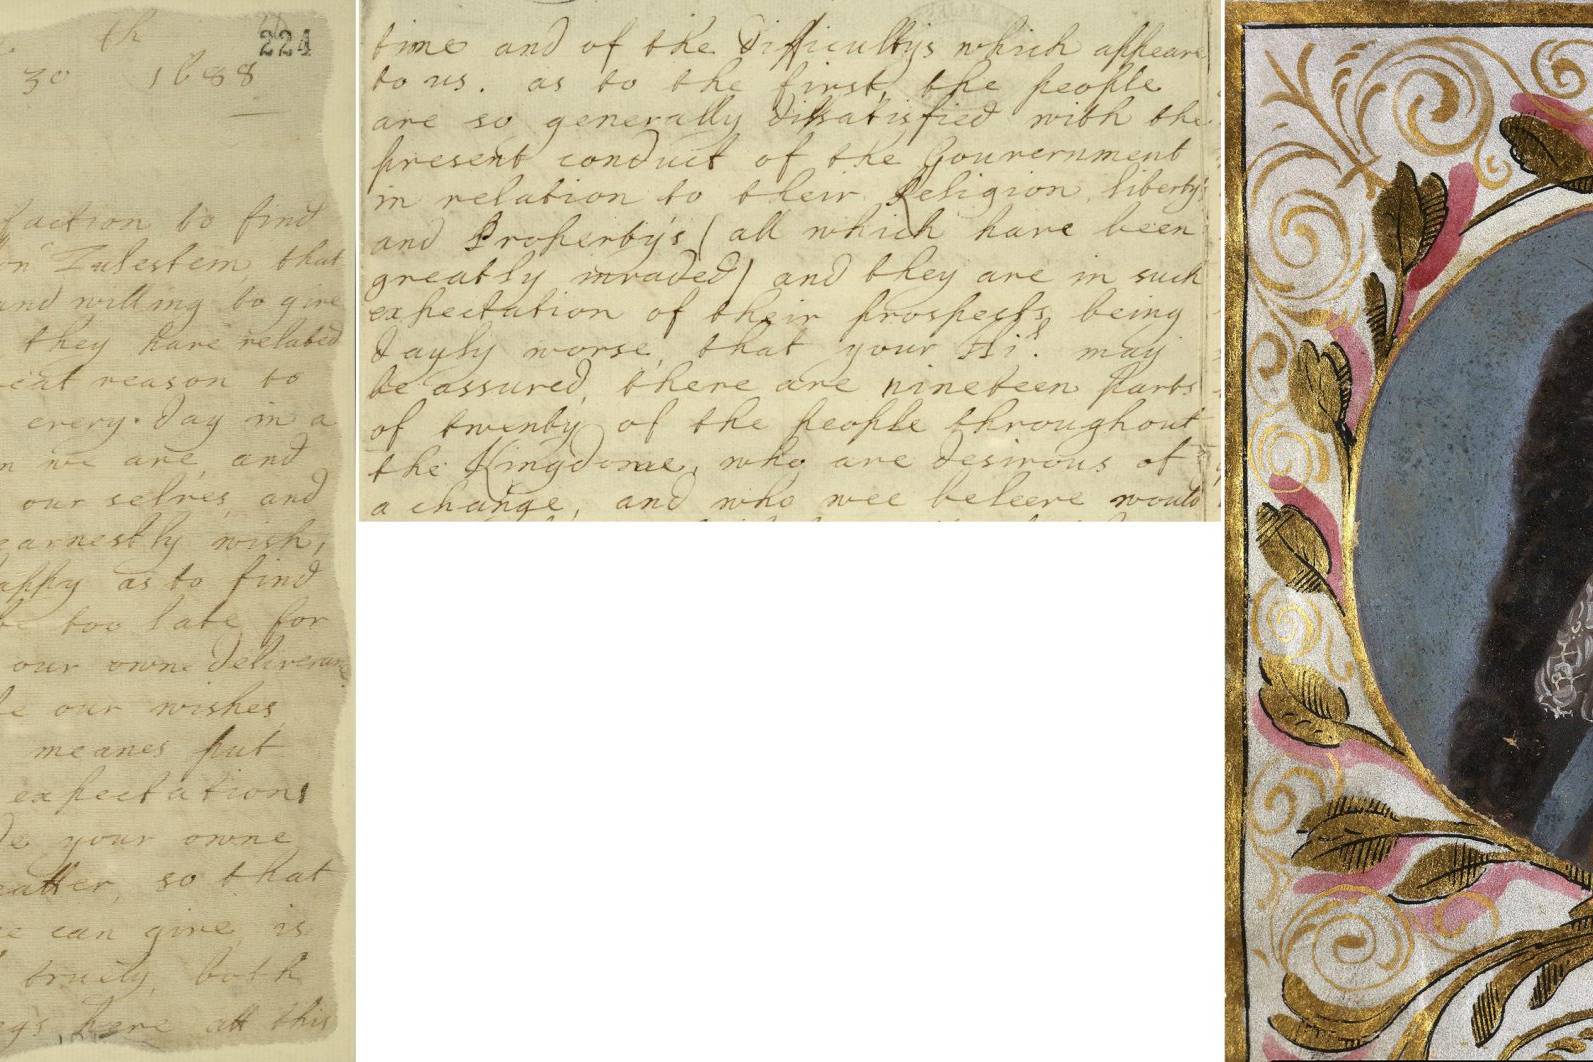 th
224
30 1688
faction to find
Zulestein that
and willing to give
they have related
reason to
every day in a
we are, and
our selves, and
earnestly wish,
happy as to find
be too late for
our owne
our wishes
meanes put
expectations
your owne
so that
can give, is
both
here att this
time and of the Difficultys which appeare
to us. as to the first, the people
are so generally dissatisfied with the
present conduct of the Gouvernment
in relation to their Religion, liberty
and Property's (all which have been
greatly invaded) and they are in such
expectation of their prospects being
dayly worse, that your Hi: may
be assured, there are nineteen parts
of twenty of the people throughout
the Kingdome, who are desirous of
a change, and who wee beleeve would